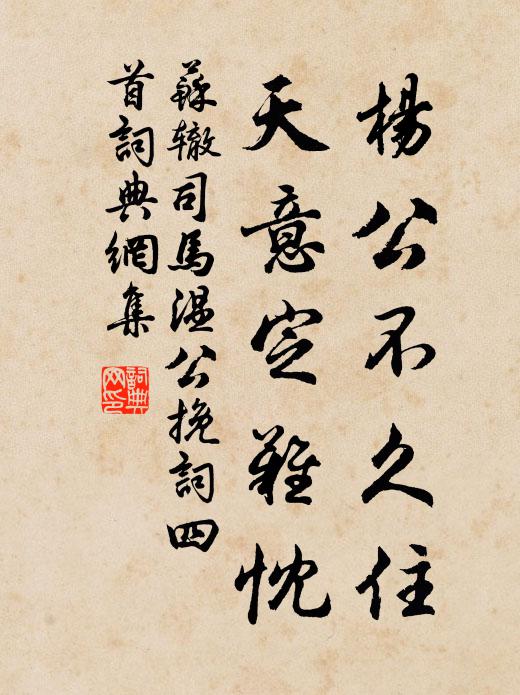 楊公不久住
天意定難忱
蘇辙司馬温公挽詞四
首詞典網集
詞典
网印